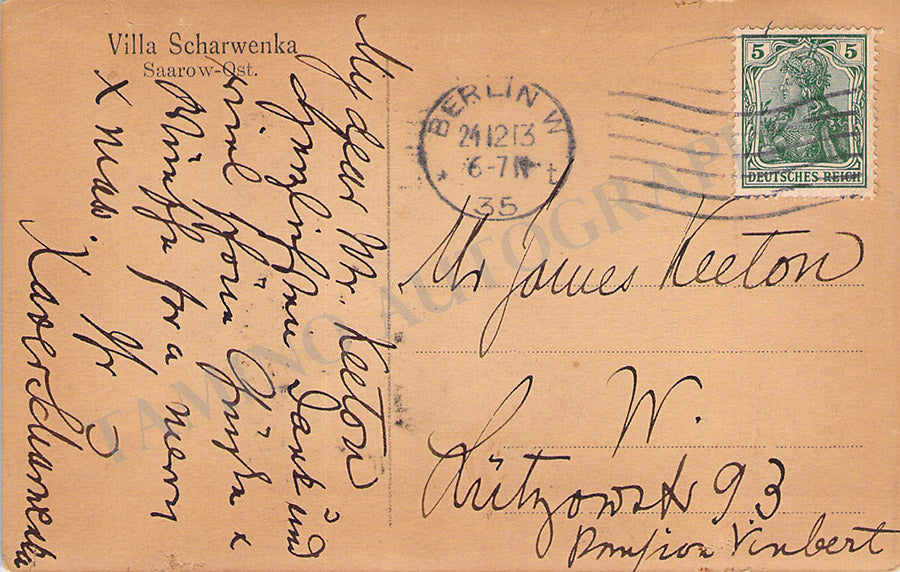 Villa Scharwenka
Saarow-Ost.
My dear Mr. Keeton
herzlichen Dank und
viel schöne Grüße &
Wünsche for a merry
X mas Yr
Xaver Scharwenka
BERLIN W
24.12.13
6-7N
* t
35
5 5
DEUTSCHES REICH
Mr James Keeton
W.
Lützowstr 93
Pension Vinbert
TAMINO AUTOGRAPHS